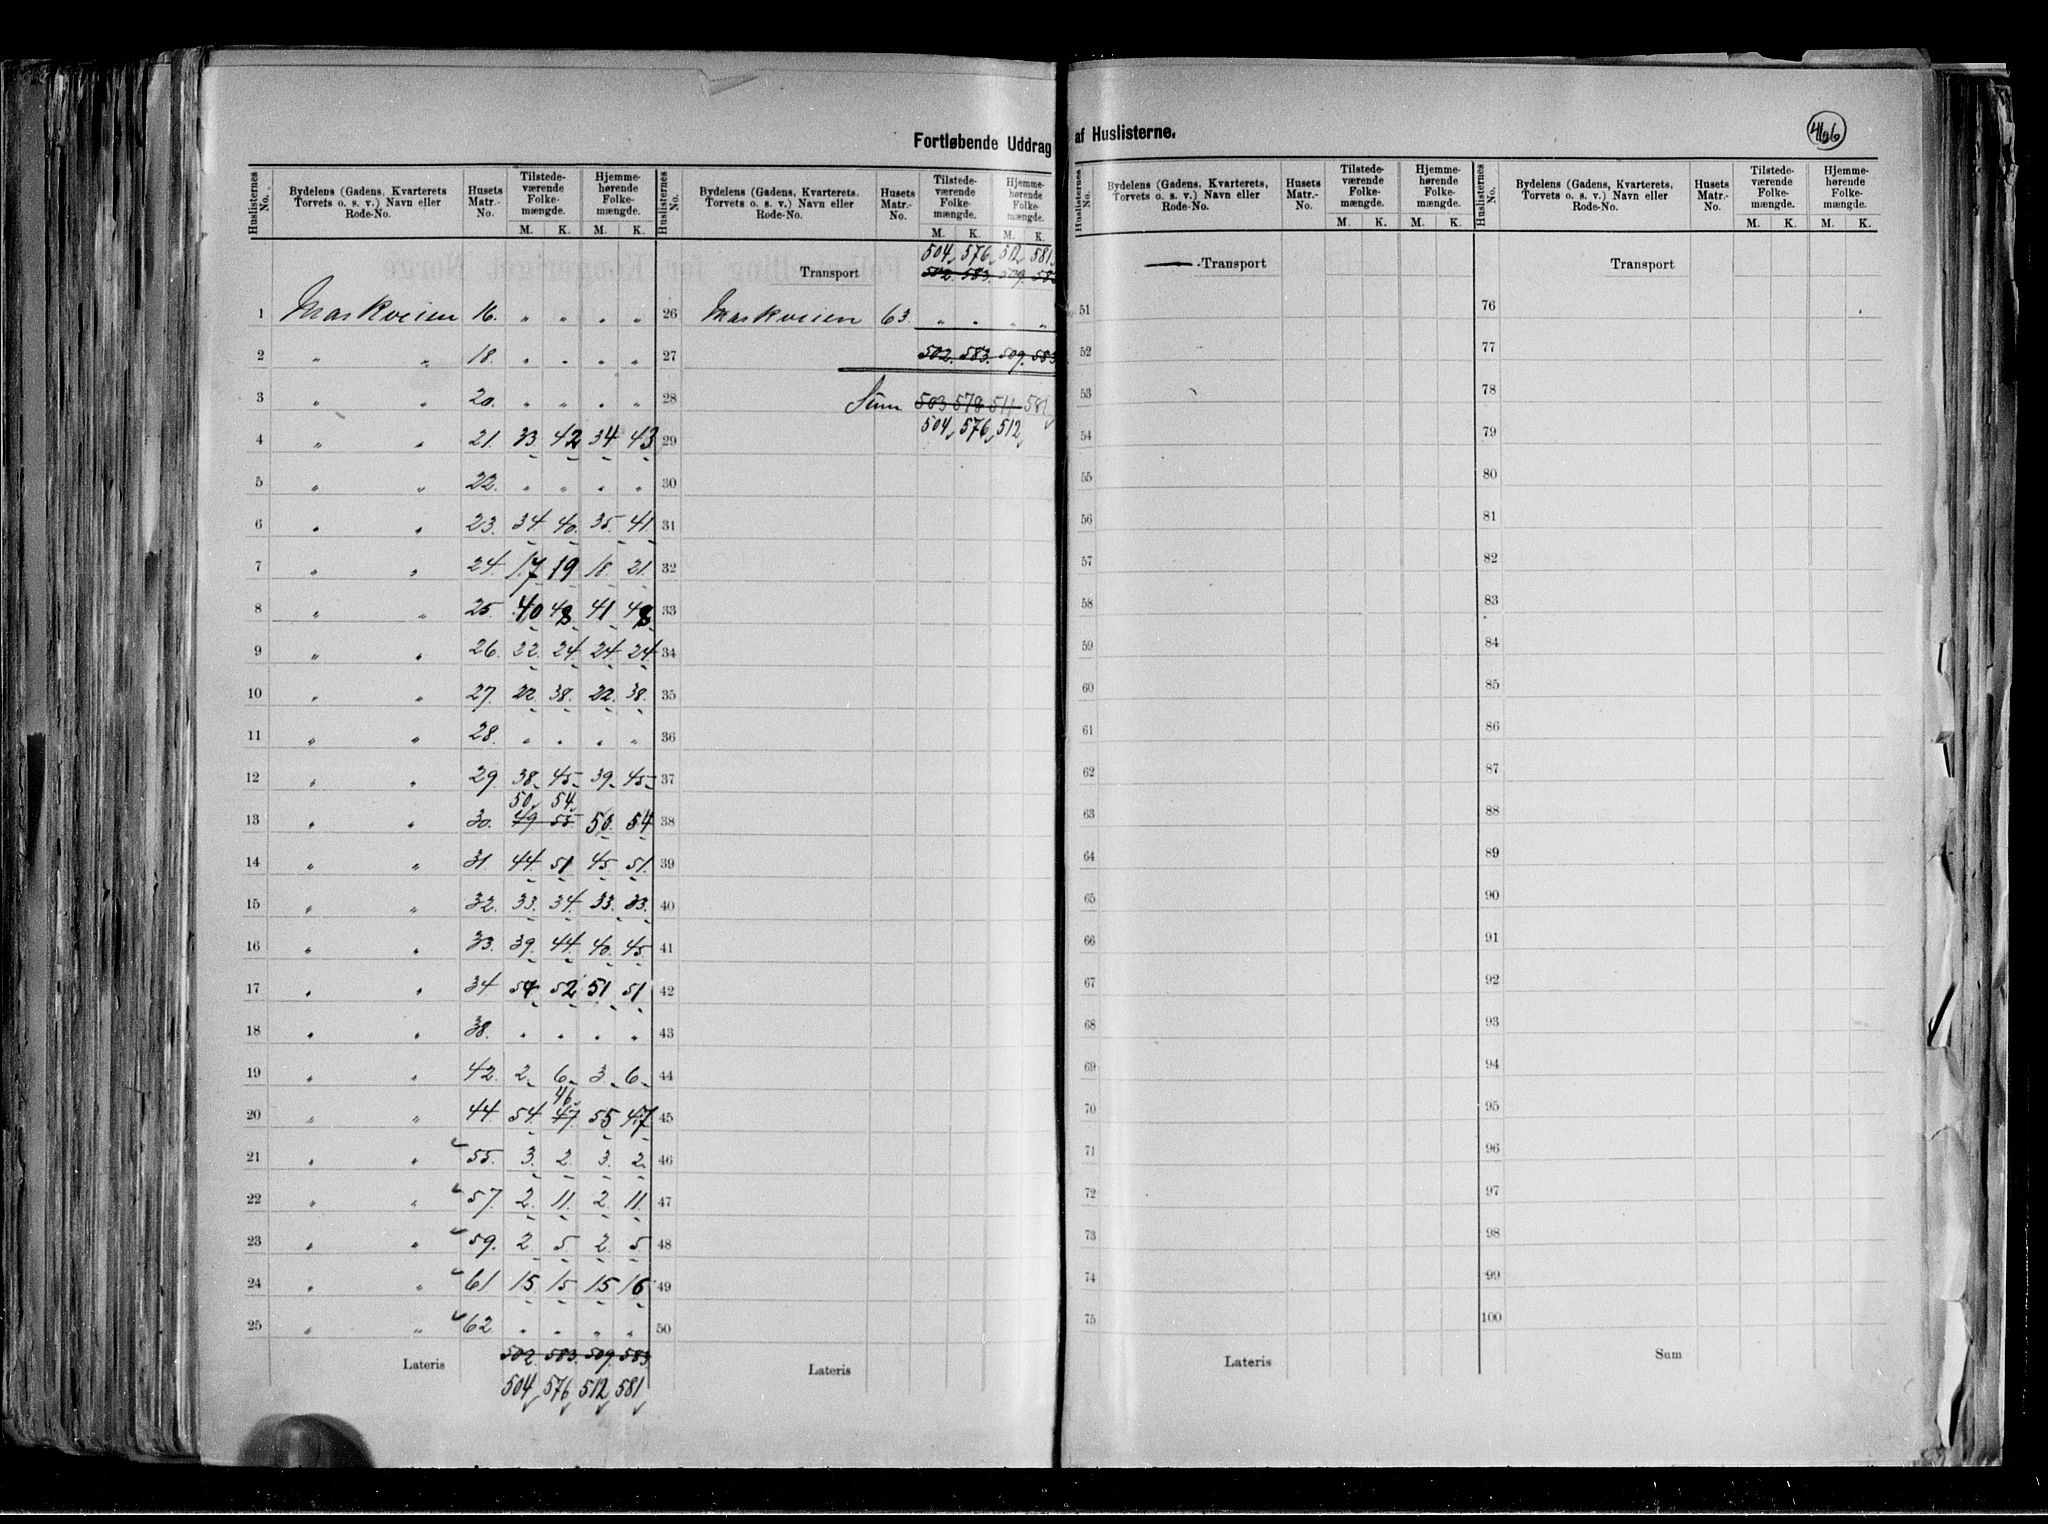 Fortløbende Uddrag af Huslisterne.
466
Huslisternes No. Bydelens (Gadens, Kvarterets Torvets o. s. v.) Navn eller Rode-No. Husets Matr.-No. Tilstedeværende Folkemængde. M. K. Hjemmehørende Folkemængde. M. K.
1 Markveien 16. „ „ „ „
2 „ „ 18. „ „ „ „
3 „ „ 20. „ „ „ „
4 „ „ 21. 33. 42 34. 43
5 „ „ 22. „ „ „ „
6 „ „ 23. 34. 40. 35. 41
7 „ „ 24. 17 19 18. 21.
8 „ „ 25. 40 48 41 48
9 „ „ 26. 22. 24. 24. 24.
10 „ „ 27. 22. 38. 22. 38.
11 „ „ 28. „ „ „ „
12 „ „ 29. 38. 45 39. 45
50 54
13 „ „ 30. 49 55 50. 54
14 „ „ 31. 44. 51 45. 51.
15 „ „ 32. 33. 34. 33. 33.
16 „ „ 33. 39. 44. 40. 45.
17 „ „ 34 54 52 51 51
18 „ „ 38. „ „ „ „
19 „ „ 42. 2. 6. 3. 6.
46
20 „ „ 44. 54. 47 55 47
21 „ „ 55. 3. 2. 3. 2.
22 „ „ 57. 2. 11. 2. 11.
23 „ „ 59. 2. 5. 2. 5
24 „ „ 61 15. 15 15. 16
25 „ „ 62 „ „ „ „
Lateris 502. 583. 509. 583
504 576 512 581
Huslisternes No. Bydelens (Gadens, Kvarterets. Torvets o. s. v.) Navn eller Rode-No. Husets Matr.-No. Tilstedeværende Folkemængde. M. K. Hjemmehørende Folkemængde. M. K.
504 576 512 581
Transport 502. 583. 509. 583
26 Markveien 63. „ „ „ „
27 502. 583. 509. 583
28 Sum 503 578 511 581
29 504 576 512
30
31
32
33
34
35
36
37
38
39
40
41
42
43
44
45
46
47
48
49
50
Lateris
Huslisternes No. Bydelens (Gadens, Kvarterets, Torvets o. s. v.) Navn eller Rode-No. Husets Matr.-No. Tilstedeværende Folkemængde. M. K. Hjemmehørende Folkemængde. M. K.
Transport
51
52
53
54
55
56
57
58
59
60
61
62
63
64
65
66
67
68
69
70
71
72
73
74
75
Lateris
Huslisternes No. Bydelens (Gadens, Kvarterets, Torvets o. s. v.) Navn eller Rode-No. Husets Matr.-No. Tilstedeværende Folkemængde. M. K. Hjemmehørende Folkemængde. M. K.
Transport
76
77
78
79
80
81
82
83
84
85
86
87
88
89
90
91
92
93
94
95
96
97
98
99
100
Sum